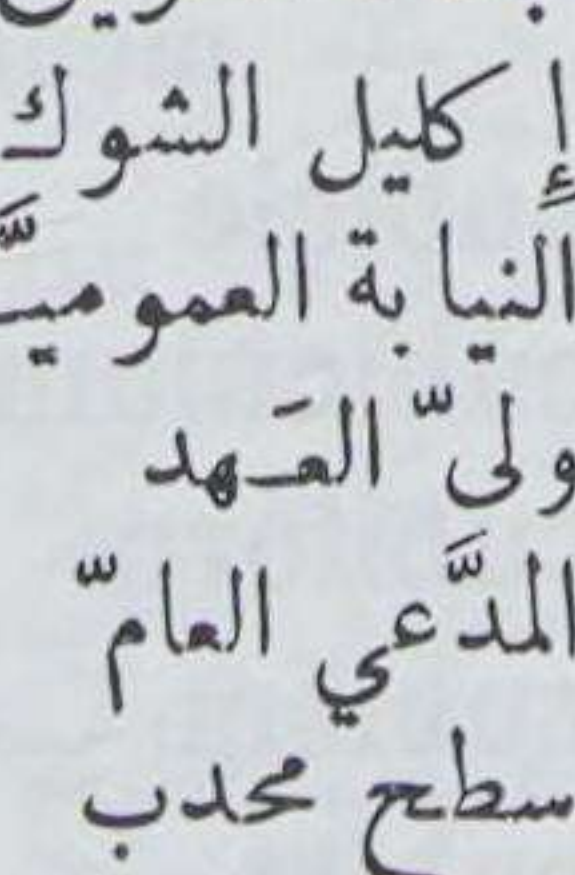 إكليل الشوك
النيابة العموميّـَ
ولىّ العَـهد
المدَّعي العامّ
سطح محدب